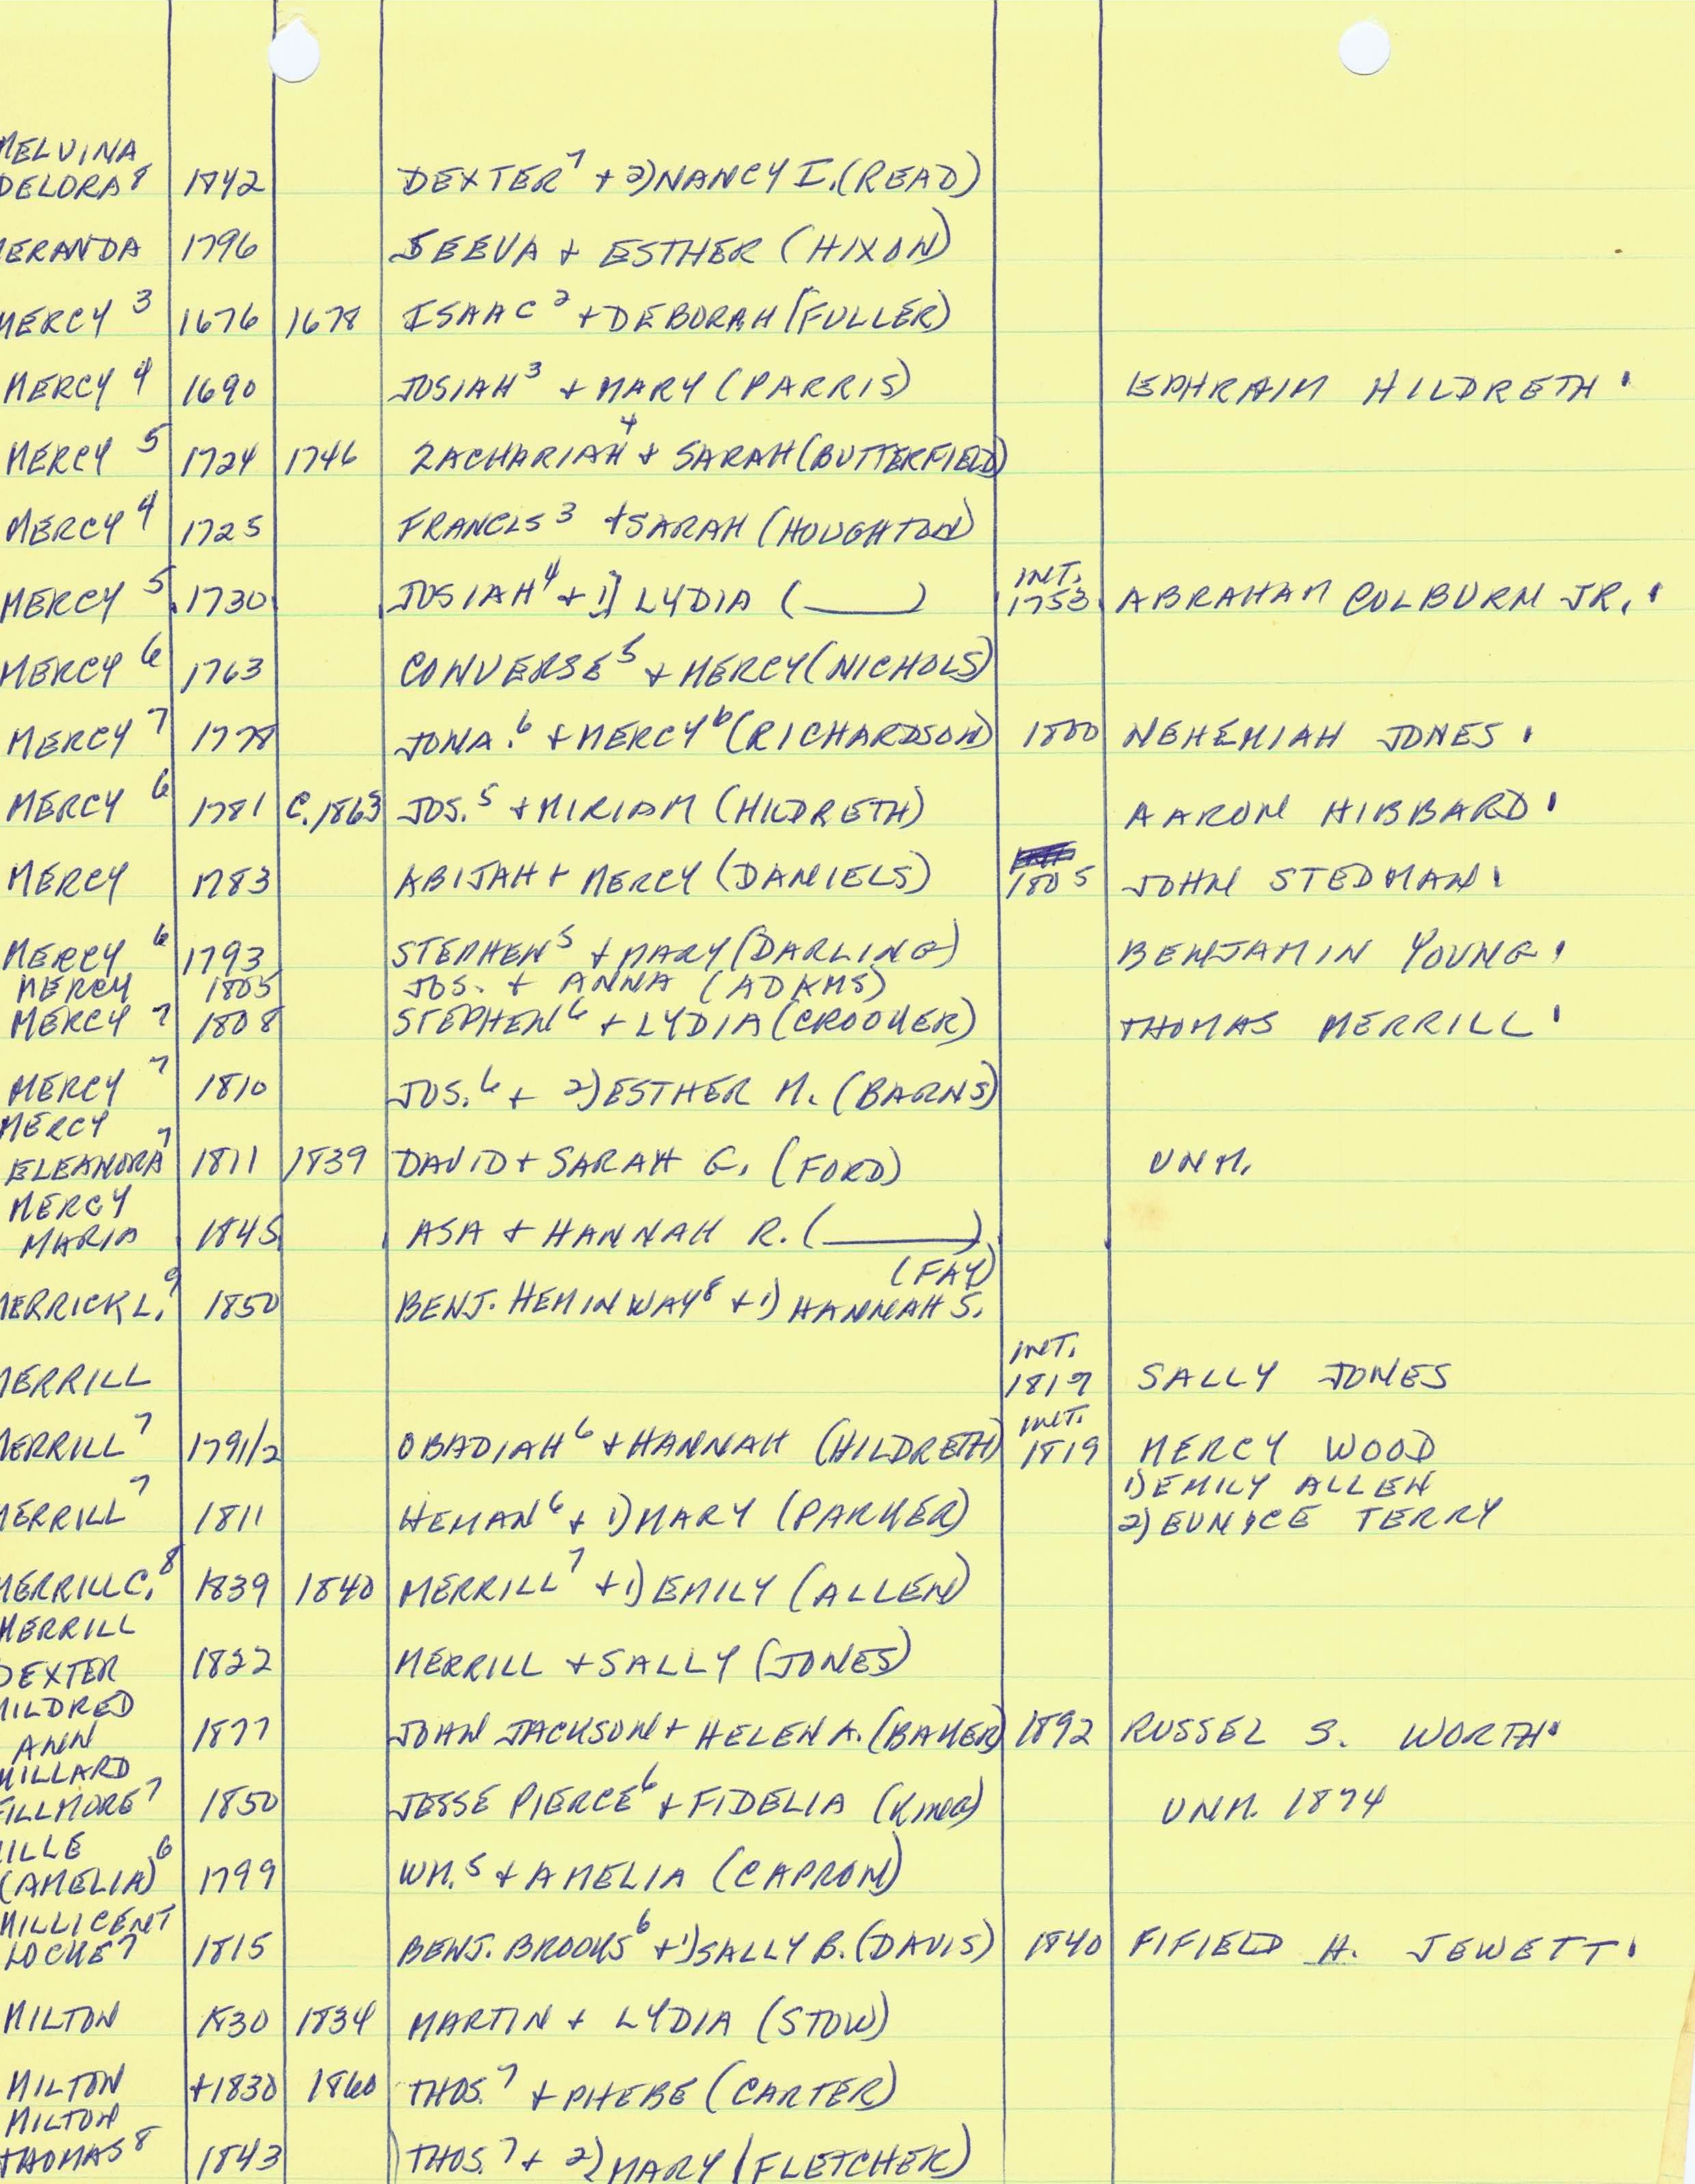 MELVINA
DELORA 8 1842 DEXTER 7 + 2) NANCY I. (READ)
MERANDA 1796 SEEVA + ESTHER (HIXON)
MERCY 3 1676 1678 ISAAC 2 + DEBORAH (FULLER)
MERCY 4 1690 JOSIAH 3 + MARY (PARRIS) EPHRAIM HILDRETH '
MERCY 5 1724 1746 ZACHARIAH 4 + SARAH (BUTTERFIELD)
MERCY 4 1725 FRANCIS 3 + SARAH (HOUGHTON)
MERCY 5 1730 JOSIAH 4 + 1) LYDIA (____) INT. 1753 ABRAHAM COLBURN JR. '
MERCY 6 1763 CONVERSE 5 + MERCY (NICHOLS)
MERCY 7 1778 JONA. 6 + MERCY 6 (RICHARDSON) 1800 NEHEMIAH JONES '
MERCY 6 1781 C. 1863 JOS. 5 + MIRIAM (HILDRETH) AARON HIBBARD '
MERCY 1783 ABIJAH + MERCY (DANIELS) 1805 JOHN STEDMAN '
MERCY 6 1793 STEPHEN 5 + MARY (DARLING) BENJAMIN YOUNG '
MERCY 1805 JOS. + ANNA (ADAMS)
MERCY 7 1808 STEPHEN 6 + LYDIA (CROOKER) THOMAS MERRILL '
MERCY 7 1810 JOS. 6 + 2) ESTHER M. (BARNS)
MERCY
ELEANORA 7 1811 1839 DAVID + SARAH G. (FORD) UNM.
MERCY
MARIA 1845 ASA + HANNAH R. (____)
(FAY)
MERRICK L. 9 1850 BENJ. HEMINWAY 8 + 1) HANNAH S.
INT.
MERRILL 1819 SALLY JONES
INT.
MERRILL 7 1791/2 OBADIAH 6 + HANNAH (HILDRETH) 1819 MERCY WOOD
1) EMILY ALLEN
MERRILL 7 1811 HEMAN 6 + 1) MARY (PARKER) 2) EUNICE TERRY
MERRILL C. 8 1839 1840 MERRILL 7 + 1) EMILY (ALLEN)
MERRILL
DEXTER 1822 MERRILL + SALLY (JONES)
MILDRED
ANN 1877 JOHN JACKSON + HELEN A. (BAKER) 1892 RUSSEL S. WORTH '
MILLARD
FILLMORE 7 1850 JESSE PIERCE 6 + FIDELIA UNM. 1874
MILLE
(AMELIA) 6 1799 WM. 5 + AMELIA (CAPRON)
MILLICENT
LOCKE 7 1815 BENJ. BROOKS 6 + 1) SALLY B. (DAVIS) 1840 FIFIELD H. JEWETT '
MILTON 1830 1834 MARTIN + LYDIA (STOW)
MILTON +1830 1860 THOS. 7 + PHEBE (CARTER)
MILTON
THOMAS 8 1843 THOS. 7 + 2) MARY (FLETCHER)